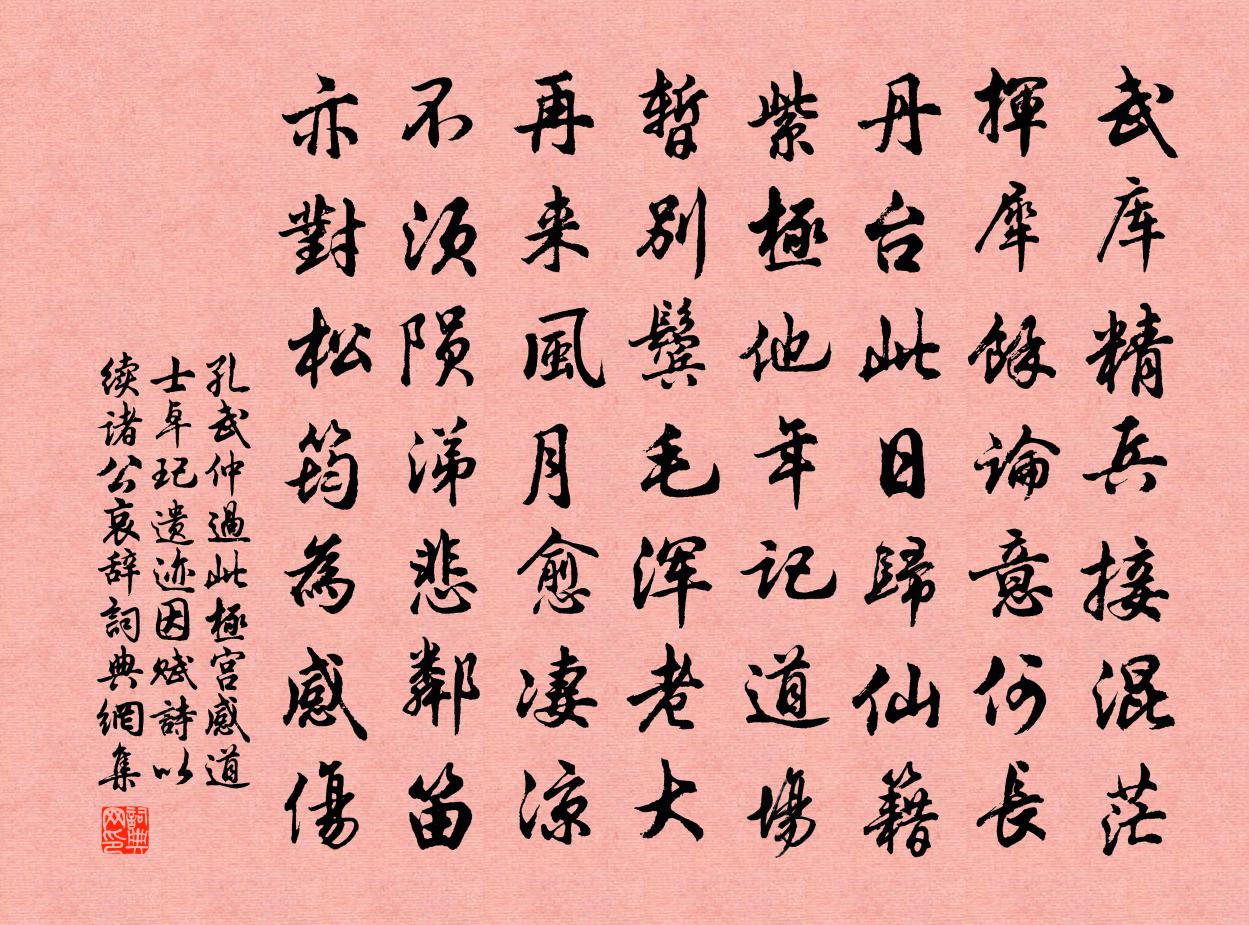 武库精兵接混茫
揮犀餘論意何長
丹台此日歸仙籍
紫極他年記道場
暫别鬓毛浑老大
再来風月愈凄凉
不须陨涕悲鄰笛
亦對松筠為感傷
孔武仲過此極宫感道
士卓玘遗迹因赋詩以
续诸公哀辞詞典網集
詞典网印